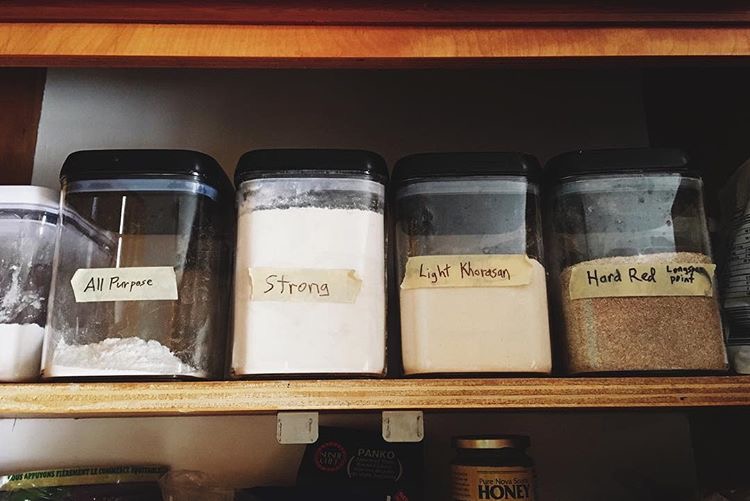 All Purpose
Strong
Light Khorasan
Hard Red Longspan
point
VOUS APPUYONS FIÈREMENT LE COMMERCE ÉQUITABLE
PANKO
Pure Nova Scotia
HONEY